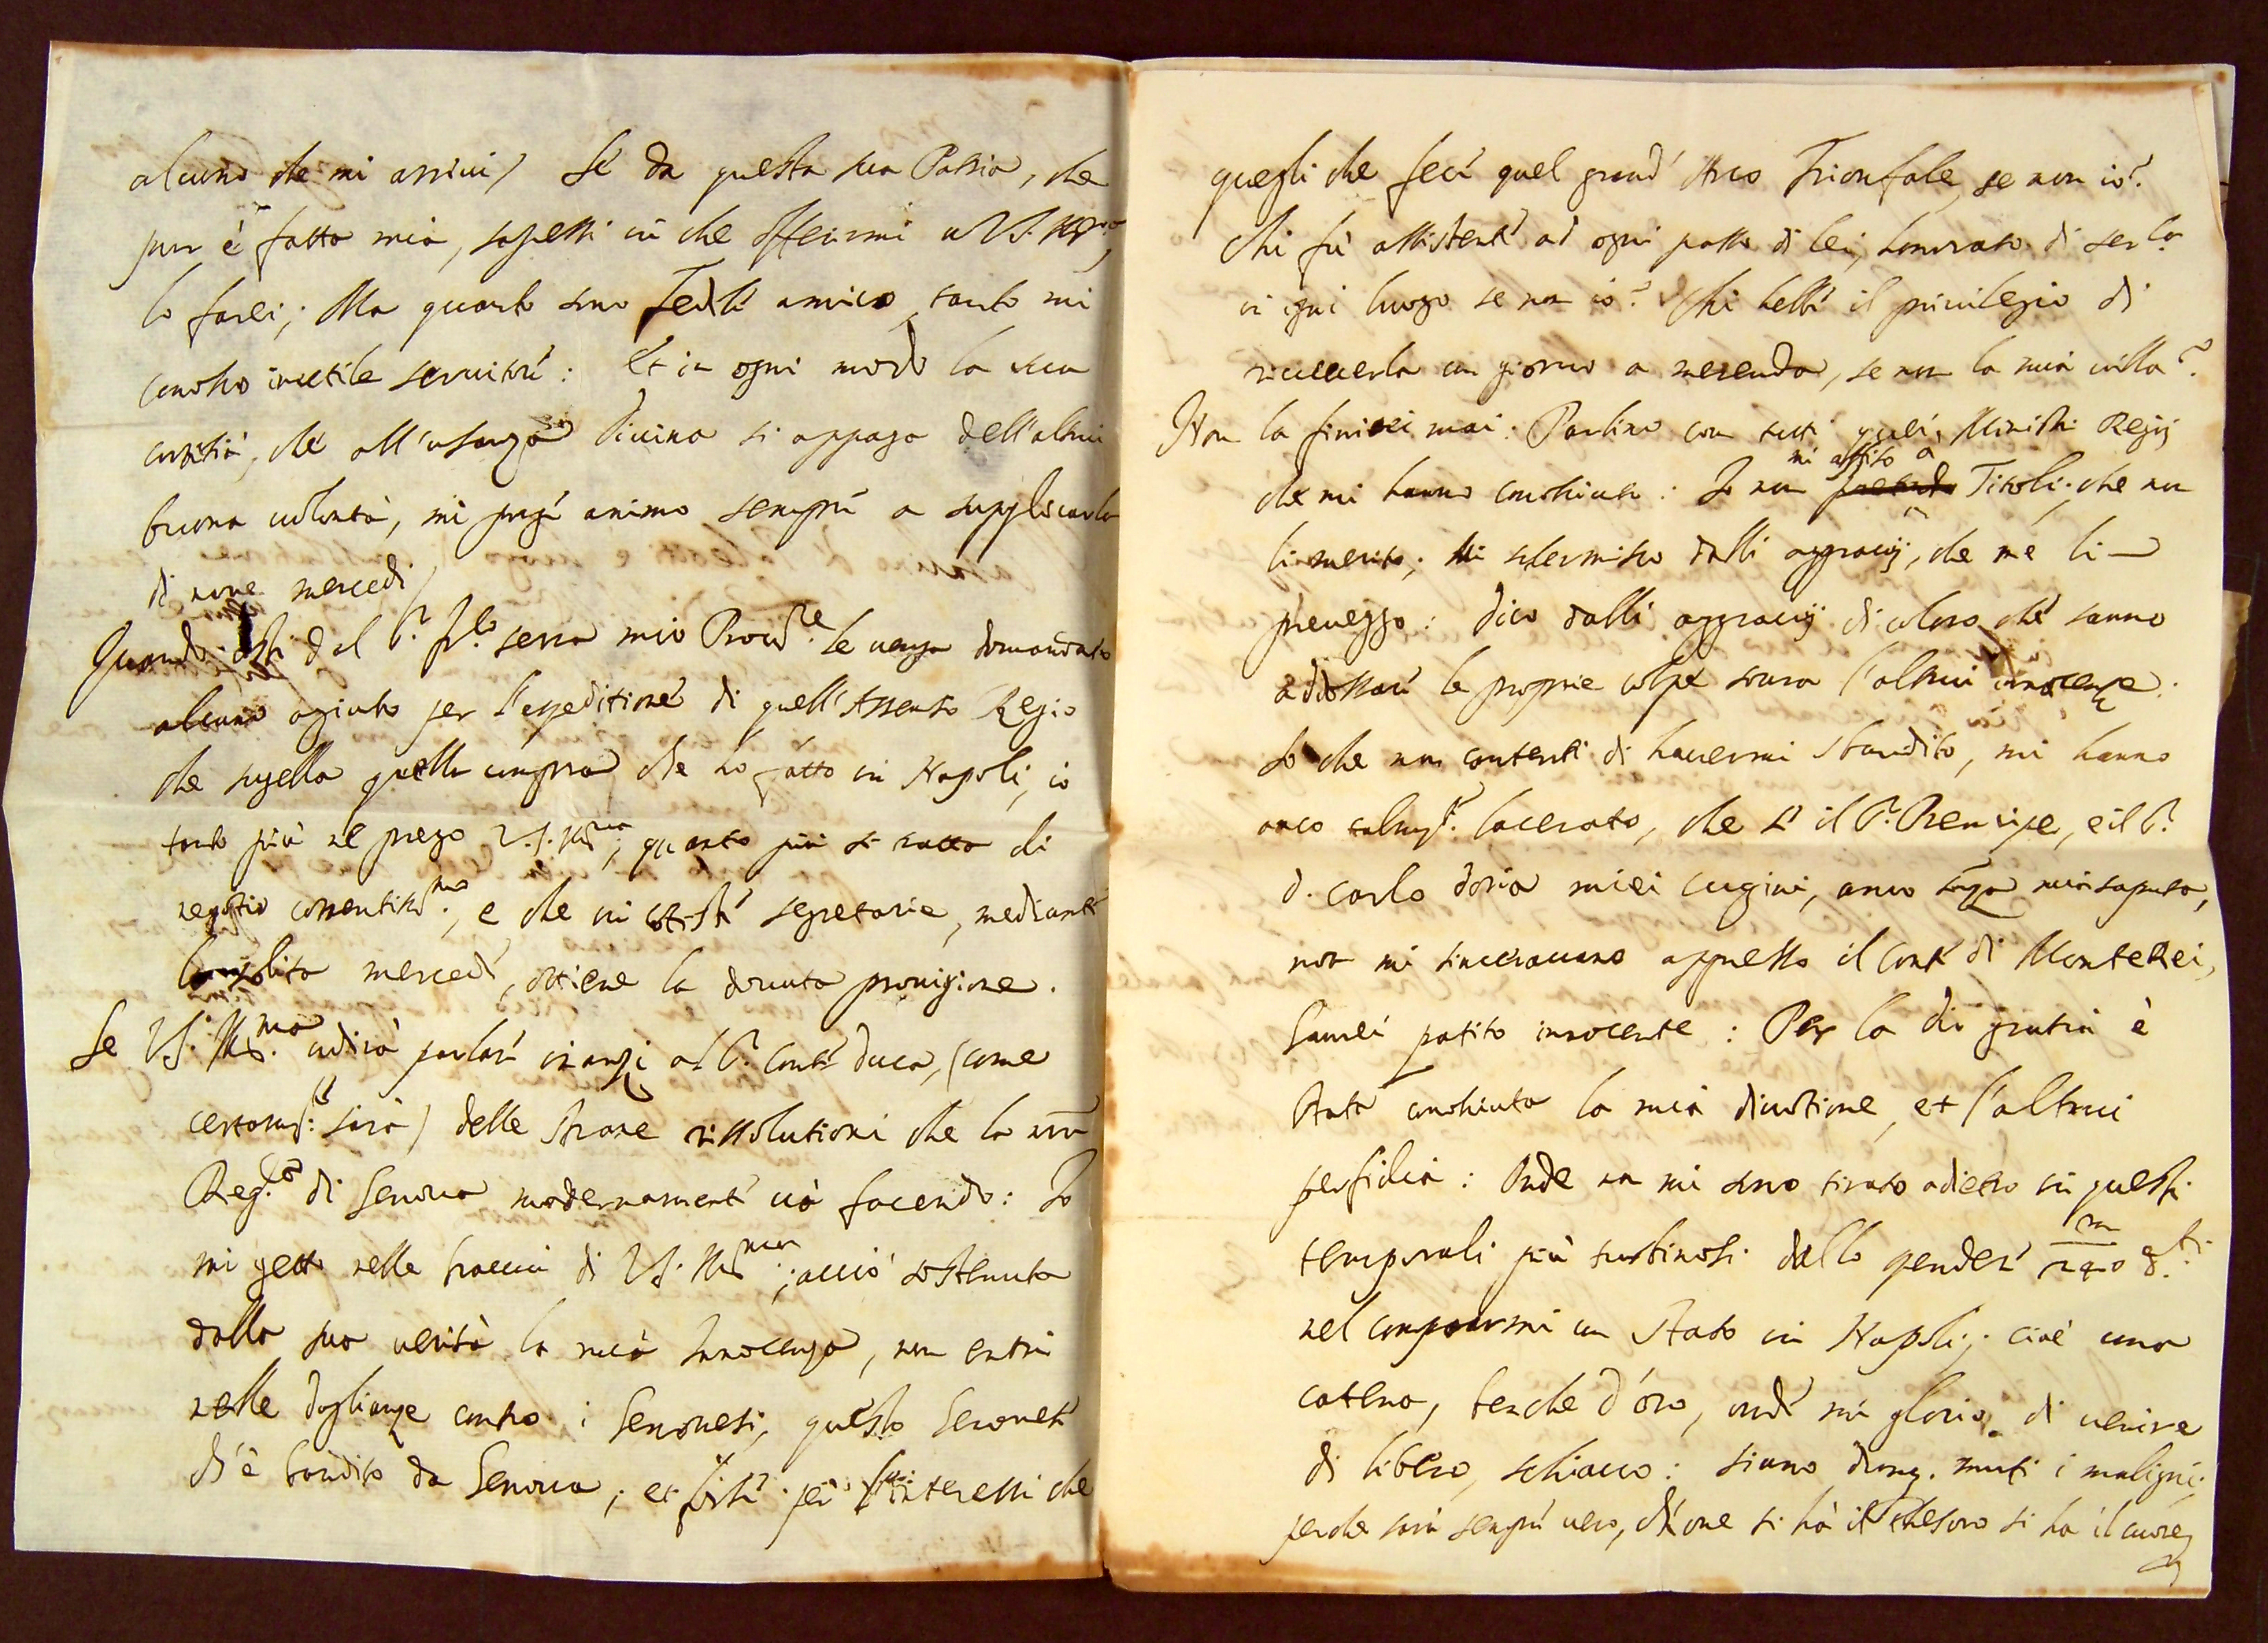 alcuno che mi arrivi / Se da questa sua Patria, che
pur è fatta mia, sapessi in che offerirmi a V.S. Ill.ma,
lo farei; Ma quanto sono fedele amico, tanto mi
conosco inutile servitore: Et in ogni modo la sua
cortesia, che all'usanza Divina si appaga dell'altrui
buona volontà, mi porge animo sempre a supplicarla
di nove mercedi /
Quando costi dal S.r serra mio Proc.re le venga domandato
alcuno agiuto per l'espeditione di quell'Assenso Regio
che sugella quella compra che ho fatto in Napoli, io
tanto più ne prego V.S. Ill.ma, quanto più si tratta di
negotio consentito, e che in coteste segretarie, mediante
la solita mercede, ottiene la dovuta provigione.
Se V.S. Ill.ma udirà parlare inanzi al S.r Conte Duca, (come
certam.te sarà) delle strane rissolutioni che la nra
Rep.ca di Genova modernamente và facendo: Io
mi getto nelle braccia di V.S. Ill.ma; acciò sostenuta
dalla sua verità la mia Innocenza, non entri
nelle doglianze contro i Genovesi, questo Genovese
ch'è bandito da Genova; et forse per gl'interessi che
quegli che fece quel grand'Arco Trionfale, se non io?
Chi fù assistente ad ogni passo di lei, honorato di ser.la
in ogni luogo se non io? Chi hebbe il privilegio di
riceverla un giorno a merenda, se non la mia villa?
Non la finirei mai: Parlino con tutti quei Ministri Regij
che mi hanno conosciuto: Io non pretendo mi assito a Titoli, che non
li merito; Mi schermisco dalli aggravij, che me li
preveggo: dico dalli aggravij di coloro che sanno
addossare le proprie colpe sovra l'altrui innocenze.
So che non contenti di havermi sbandito, mi hanno
anco lacerato, che se il S.r Prencipe, e il S.r
D. Carlo Doria miei cugini, anco senza mia saputa,
non mi sinceravano appresso il Conte di Monterei,
haurei patito innocente: Per la dio gratia è
stata conosciuta la mia divotione, et l'altrui
perfidia: Onde non mi sono tirato adietro in questi
temporali più turbinosi dallo spendere
nel comprarmi un Stato in Napoli; cioè una
catena, benche d'oro, onde mi glorio di venire
di libero, schiavo: siano dunq. muti i maligni;
perche sarà sempre vero, ch'ove si hà il thesoro si ha il cuore